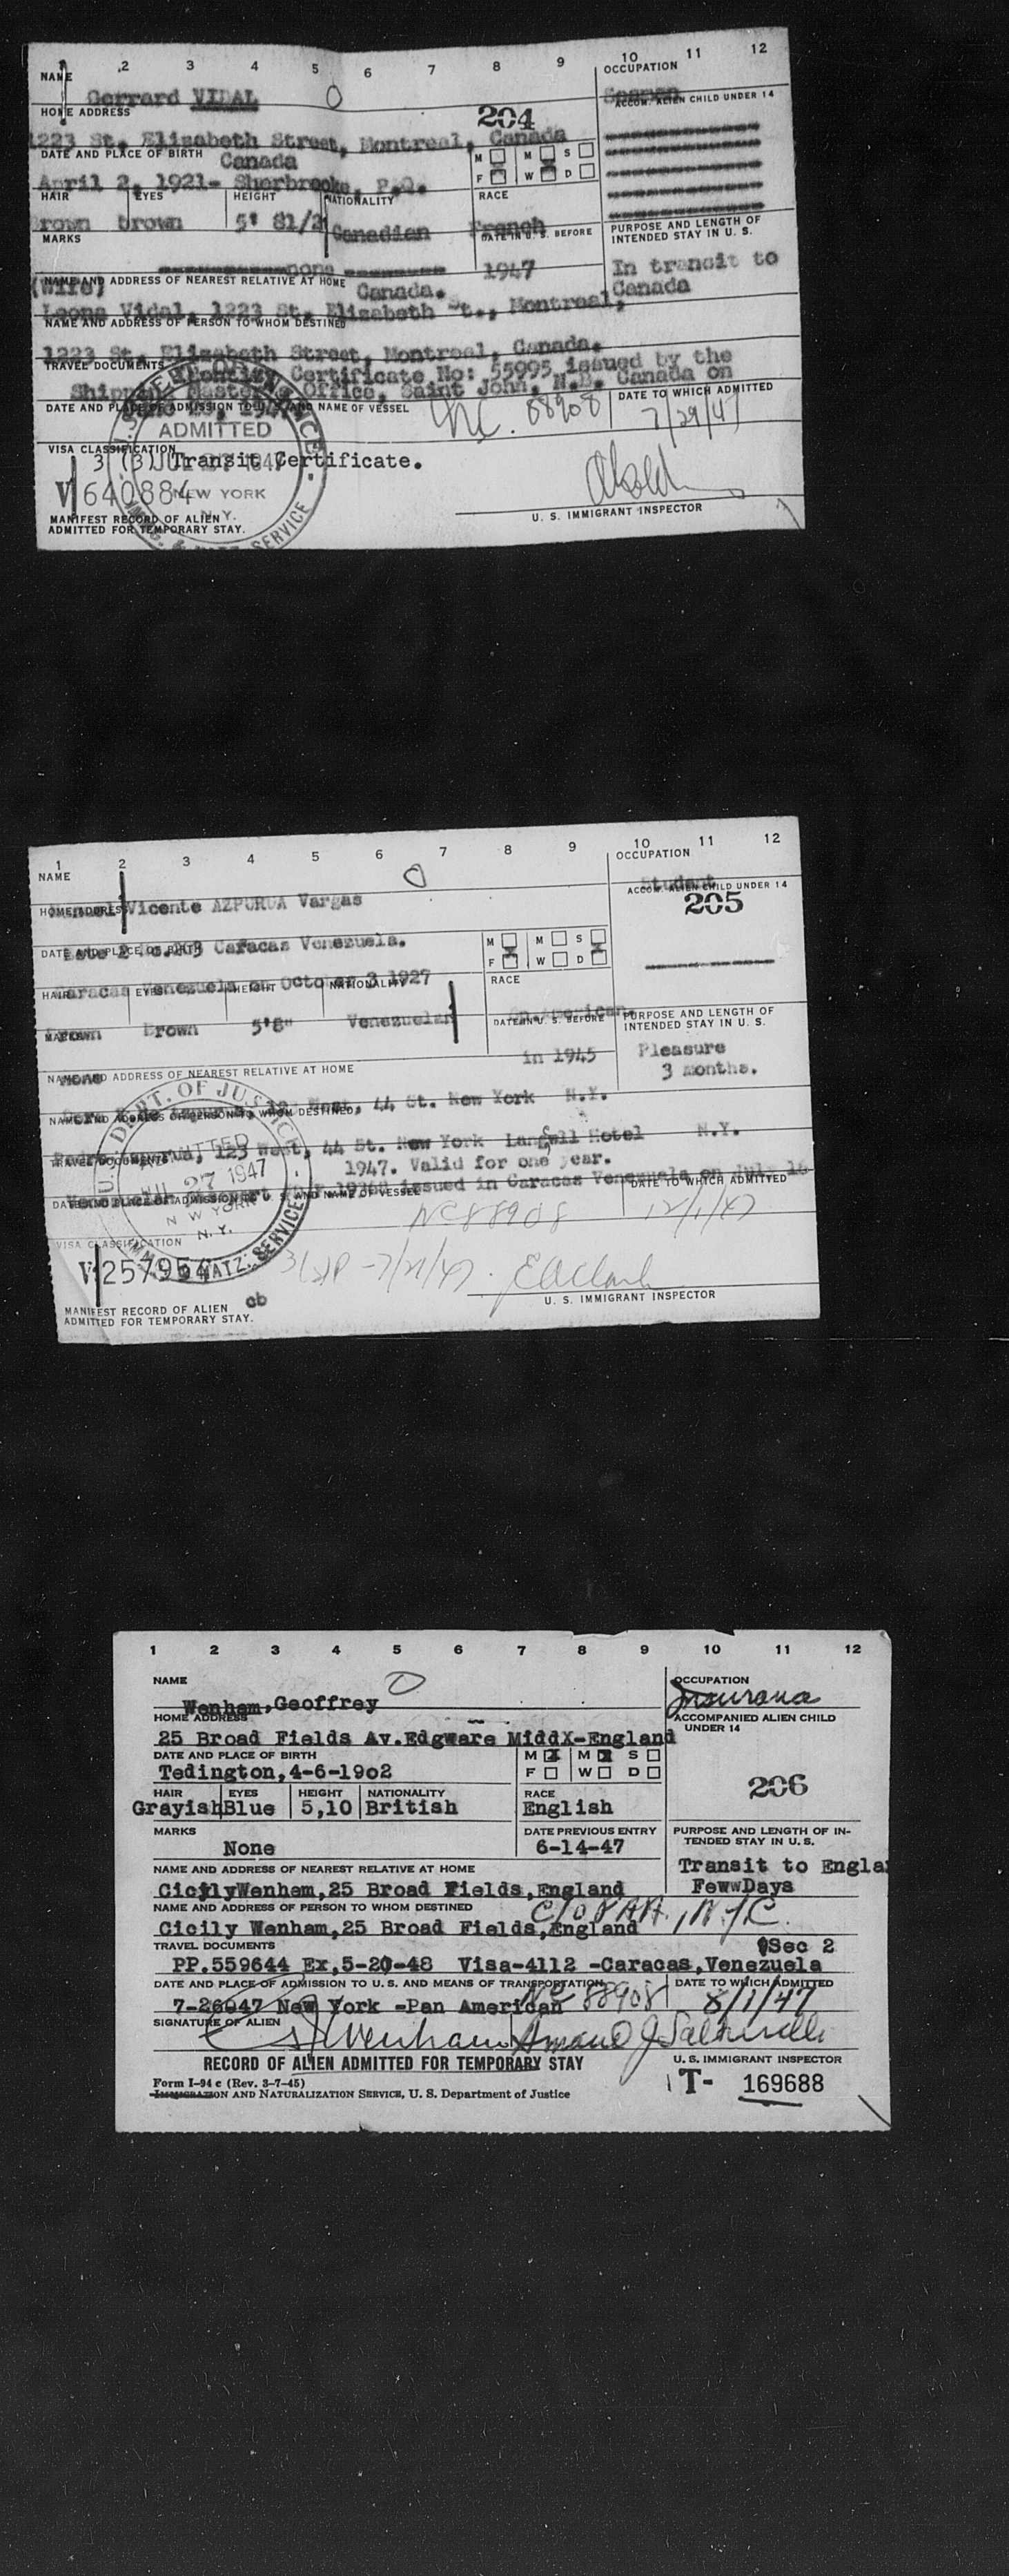 1 2 3 4 5 6 7 8 9 10 11 12
NAME
OCCUPATION
Gerrard VIDAL
Seaman
HOME ADDRESS
204
ACCOM. ALIEN CHILD UNDER 14
1223 St. Elizabeth Street, Montreal, Canada
DATE AND PLACE OF BIRTH
Canada
M M S
F W D
April 2, 1921- Sherbrooke, P.Q.
HAIR EYES HEIGHT NATIONALITY RACE
brown brown 5' 81/2 Canadian French
MARKS
DATE IN U. S. BEFORE
PURPOSE AND LENGTH OF
INTENDED STAY IN U. S.
none
1947
In transit to
Canada
NAME AND ADDRESS OF NEAREST RELATIVE AT HOME
(Wife)
Canada.
Leona Vidal, 1223 St. Elizabeth St., Montreal,
NAME AND ADDRESS OF PERSON TO WHOM DESTINED
1223 St. Elizabeth Street, Montreal, Canada.
TRAVEL DOCUMENTS
Certificate No: 55995 issued by the
Shipping Masters Office, Saint John, N.B. Canada on
DATE AND PLACE OF ADMISSION TO U. S. AND NAME OF VESSEL
DATE TO WHICH ADMITTED
NC. 88908
7/29/47
ADMITTED
VISA CLASSIFICATION
3 (3) Transit Certificate.
JUL 27 1947
V 640884
NEW YORK
N. Y.
MANIFEST RECORD OF ALIEN
ADMITTED FOR TEMPORARY STAY.
U. S. IMMIGRANT INSPECTOR
1 2 3 4 5 6 7 8 9 10 11 12
NAME
OCCUPATION
Student
ACCOM. ALIEN CHILD UNDER 14
205
HOME ADDRESS
Vicente AZPURUA Vargas
DATE AND PLACE OF BIRTH
Caracas Venezuela.
M M S
F W D
Caracas Venezuela on October 3 1927
HAIR EYES HEIGHT NATIONALITY RACE
MARKS
Brown Brown 5'8" Venezuelan
DATE IN U. S. BEFORE
PURPOSE AND LENGTH OF
INTENDED STAY IN U. S.
in 1945
Pleasure
3 months.
None
NAME AND ADDRESS OF NEAREST RELATIVE AT HOME
West, 44 St. New York N.Y.
NAME AND ADDRESS OF PERSON TO WHOM DESTINED
Pedro Azpurua, 123 West, 44 St. New York Langwell Hotel N.Y.
TRAVEL DOCUMENTS
1947. Valid for one year.
issued in Caracas Venezuela on July 16
DATE AND PLACE OF ADMISSION TO U. S. AND NAME OF VESSEL
DATE TO WHICH ADMITTED
NC 88908
12/1/47
DEPT. OF JUSTICE
ADMITTED
JUL 27 1947
NEW YORK
N. Y.
IMMIG. & NATZ. SERVICE
VISA CLASSIFICATION
V 257954
U. S. IMMIGRANT INSPECTOR
cb
MANIFEST RECORD OF ALIEN
ADMITTED FOR TEMPORARY STAY.
1 2 3 4 5 6 7 8 9 10 11 12
NAME
OCCUPATION
Wenham, Geoffrey
Insurance
HOME ADDRESS
ACCOMPANIED ALIEN CHILD
UNDER 14
25 Broad Fields Av.Edgware MiddX-England
DATE AND PLACE OF BIRTH
M M S
F W D
Tedington,4-6-1902
206
HAIR EYES HEIGHT NATIONALITY RACE
Grayish Blue 5,10 British English
MARKS
DATE PREVIOUS ENTRY
PURPOSE AND LENGTH OF IN-
TENDED STAY IN U. S.
None
6-14-47
Transit to Engla
FewwDays
NAME AND ADDRESS OF NEAREST RELATIVE AT HOME
CicilyWenham,25 Broad Fields,England
NAME AND ADDRESS OF PERSON TO WHOM DESTINED
C/O PAA, N.Y.C.
Cicily Wenham,25 Broad Fields,England
TRAVEL DOCUMENTS
Sec 2
PP.559644 Ex,5-20-48 Visa-4112 -Caracas,Venezuela
DATE AND PLACE OF ADMISSION TO U. S. AND MEANS OF TRANSPORTATION
DATE TO WHICH ADMITTED
7-26047 New York -Pan American
NC 88908
8/1/47
SIGNATURE OF ALIEN
RECORD OF ALIEN ADMITTED FOR TEMPORARY STAY
U. S. IMMIGRANT INSPECTOR
Form I-94 c (Rev. 3-7-45)
IMMIGRATION AND NATURALIZATION SERVICE, U. S. Department of Justice
T- 169688